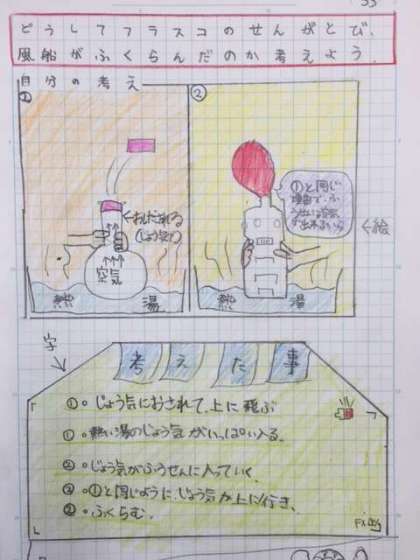 どうしてフラスコのせんがとび、
風船がふくらんだのか考えよう。
自分の考え
①
おしだされる
(じょう気)
空気
熱 湯
②
①と同じ
理由で、ふ
熱 湯
←絵
字
考えた事
①・じょう気におされて、上に飛ぶ
①・熱い湯のじょう気がいっぱい入る。
②・じょう気がふうせんに入っていく。
②・①と同じように、じょう気が上に行き、
②・ふくらむ。